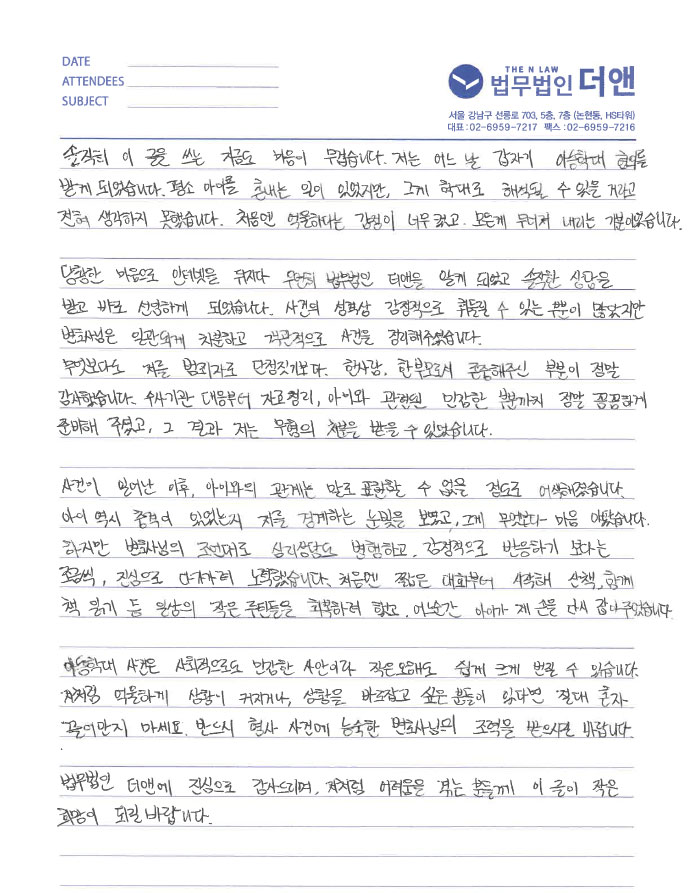 DATE
ATTENDEES
SUBJECT
THE N LAW
법무법인 더앤
서울 강남구 선릉로 703, 5층, 7층 (논현동, HS타워)
대표 : 02-6959-7217 팩스 : 02-6959-7216
솔직히 이 글을 쓰는 지금도 마음이 무겁습니다. 저는 어느 날 갑자기 아동학대 혐의를
받게 되었습니다. 평소 아이를 혼내는 일이 있었지만, 그게 학대로 해석될 수 있을 거라고
전혀 생각하지 못했습니다. 처음엔 억울하다는 감정이 너무 컸고. 모든게 무너져 내리는 기분이었습니다.
당황한 마음으로 인터넷을 뒤지다 우연히 법무법인 더앤을 알게 되었고 솔직한 상담을
받고 바로 선임하게 되었습니다. 사건의 성격상 감정적으로 휘둘릴 수 있는 부분이 많았지만
변호사님은 일관되게 차분하고 객관적으로 사건을 정리해주셨습니다.
무엇보다도 저를 범죄자로 단정짓기보다. 한사람, 한부모로서 존중해주신 부분이 정말
감사했습니다. 수사기관 대응부터 자료정리, 아이와 관련된 민감한 부분까지 정말 꼼꼼하게
준비해 주셨고, 그 결과 저는 무혐의 처분을 받을 수 있었습니다.
사건이 일어난 이후, 아이와의 관계는 말로 표현할 수 없을 정도로 어색해졌습니다.
아이 역시 충격이 있었는지 저를 경계하는 눈빛을 보였고, 그게 무엇보다 마음 아팠습니다.
하지만 변호사님의 조언대로 심리상담도 병행하고, 감정적으로 반응하기 보다는
조금씩, 진심으로 다가가려 노력했습니다. 처음엔 짧은 대화부터 시작해 산책, 함께
책 읽기 등 일상의 작은 루틴들을 회복하려 했고, 어느순간 아이가 제 손을 다시 잡아주었습니다.
아동학대 사건은 사회적으로도 민감한 사안이라 작은오해도 쉽게 크게 번질 수 있습니다.
저처럼 억울하게 상황이 커지거나, 상황을 바로잡고 싶은 분들이 있다면 절대 혼자
끌어안지 마세요. 반드시 형사 사건에 능숙한 변호사님의 조력을 받으시면 바랍니다.
법무법인 더앤에 진심으로 감사드리며, 저처럼 어려움을 겪는 분들께 이 글이 작은
희망이 되길 바랍니다.